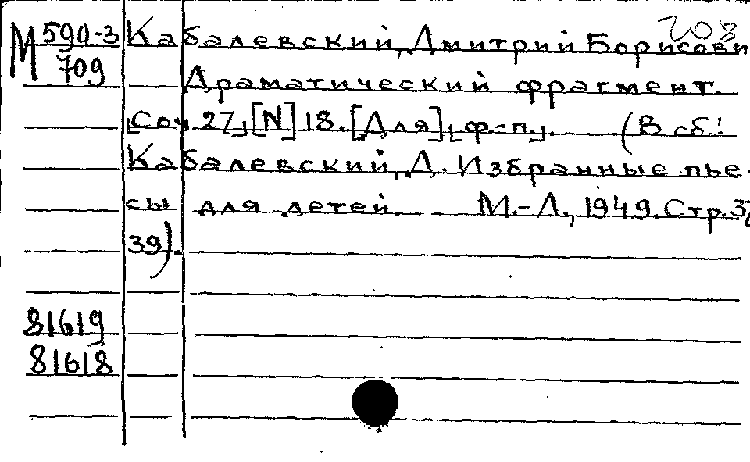 203
М 590-3 Кабалевский, Дмитрий Борисови
709 Драматический фрагмент.
[Соч. 27,] [N] 18. [Для] [ф-п.]. (В сб:
Кабалевский, Д. Избранные пье-
сы для детей. М.-Л., 1949. Стр. 3
39).
81619
81618